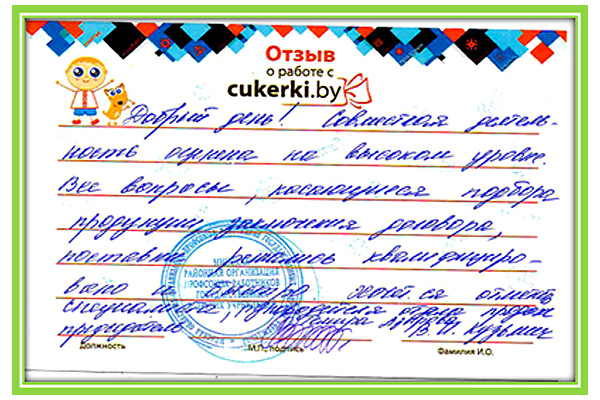 Отзыв
о работе с
cukerki.by
Добрый день! Совместная деятель-
ность оценена на высоком уровне.
Все вопросы, касающиеся подбора
продукции, заключения договора,
поставки решались квалифициро-
вано и быстро. Хочется отметить
специалиста отдела продаж
председатель В.Ч. Кузьмич
РАЙОННАЯ ОРГАНИЗАЦИЯ
ПРОФСОЮЗА РАБОТНИКОВ
Должность М.П., подпись Фамилия И.О.